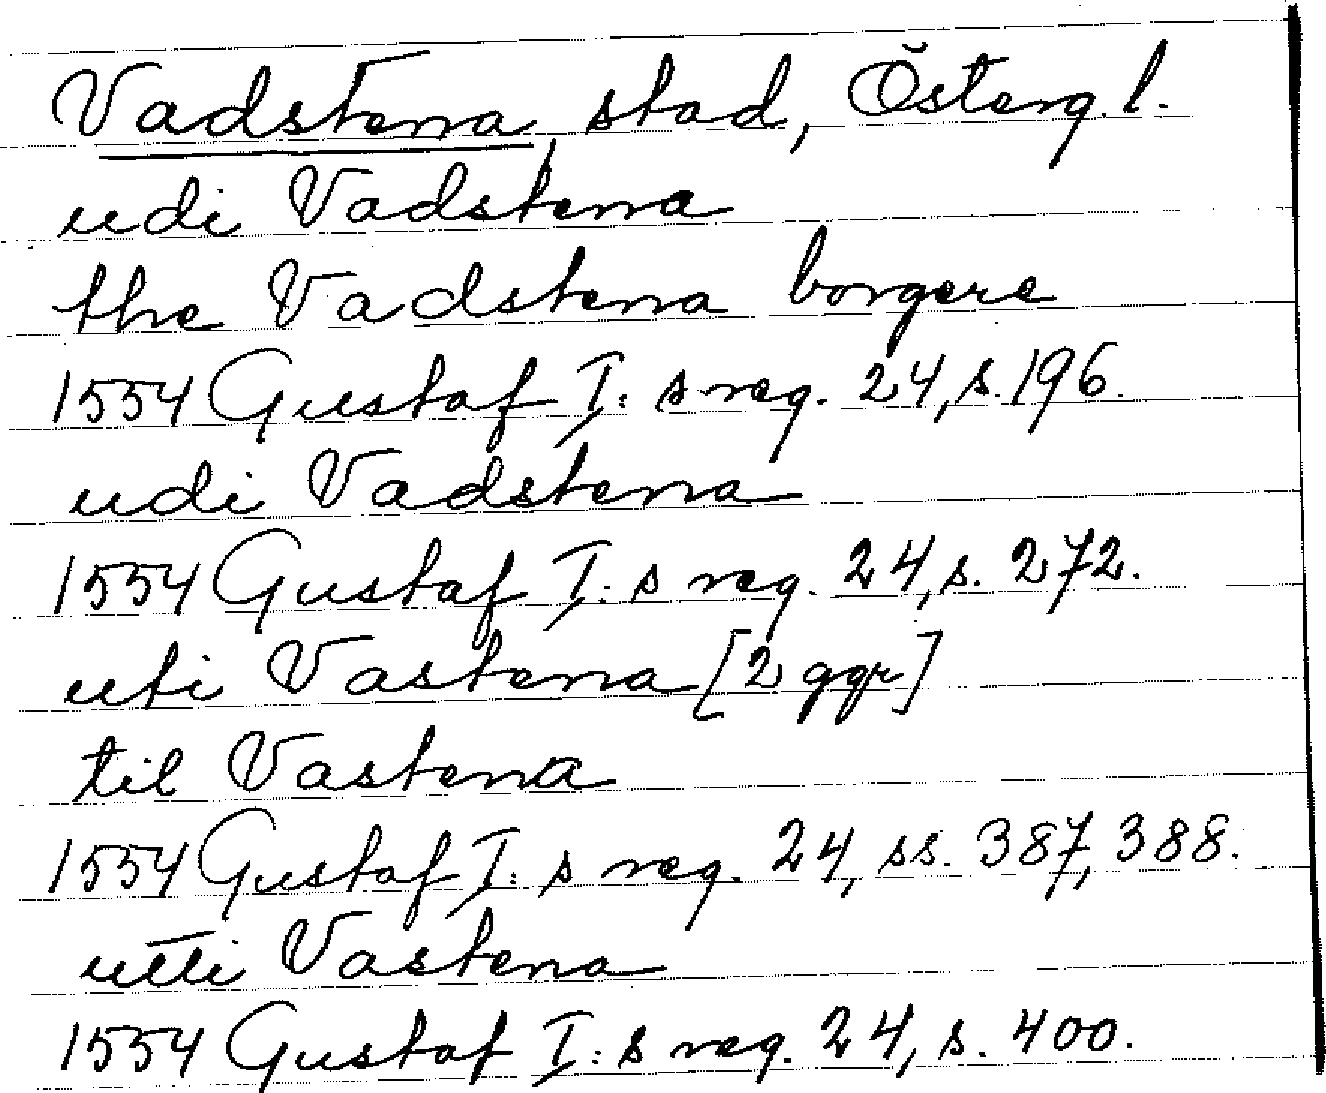 Vadstena, stad, Österg.l.
udi Vadstena
the Vadstena borgere
1554 Gustaf I:s reg. 24, s. 196.
udi Vadstena
1554 Gustaf I:s reg. 24, s. 272.
uti Vastena [2 ggr]
til Vastena
1554 Gustaf I:s reg. 24, ss. 387, 388.
utti Vastena
1554 Gustaf I:s reg. 24, s. 400.